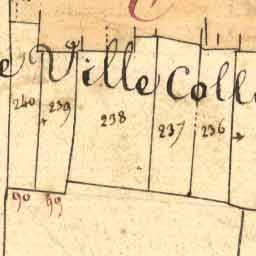 Ville Coll
240 239 238 237 236
90 89